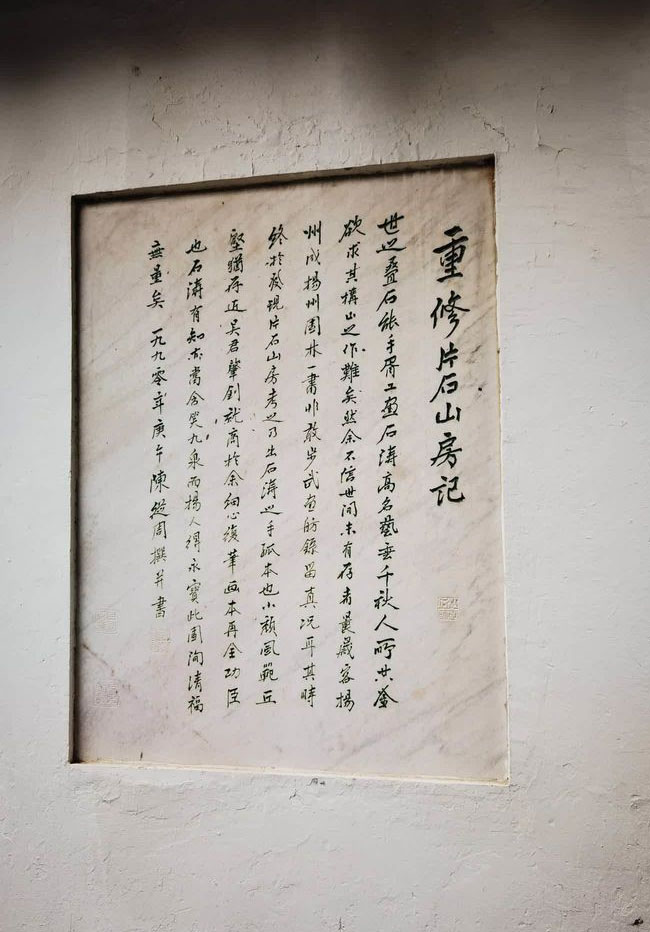 重修片石山房記
世之叠石能手胥工畫石濤高名藝垂千秋人所共鉴
欲求其構山之作難矣然余不信世間未有存者曩歲客揚
州成揚州園林一書非敢步武畫舫錄留真況耳其時
終於發現片石山房考之乃出石濤之手孤本也小頹風範丘
壑猶存近吴君肇钊就商於余細心復筆画本再全功臣
也石濤有知亦當含笑九泉而揚人得永寶此園洵清福
無量矣 一九九零年庚午陳從周撰并書